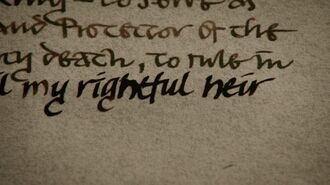 to serve as
and Protector of the
death, to rule in
my rightful heir